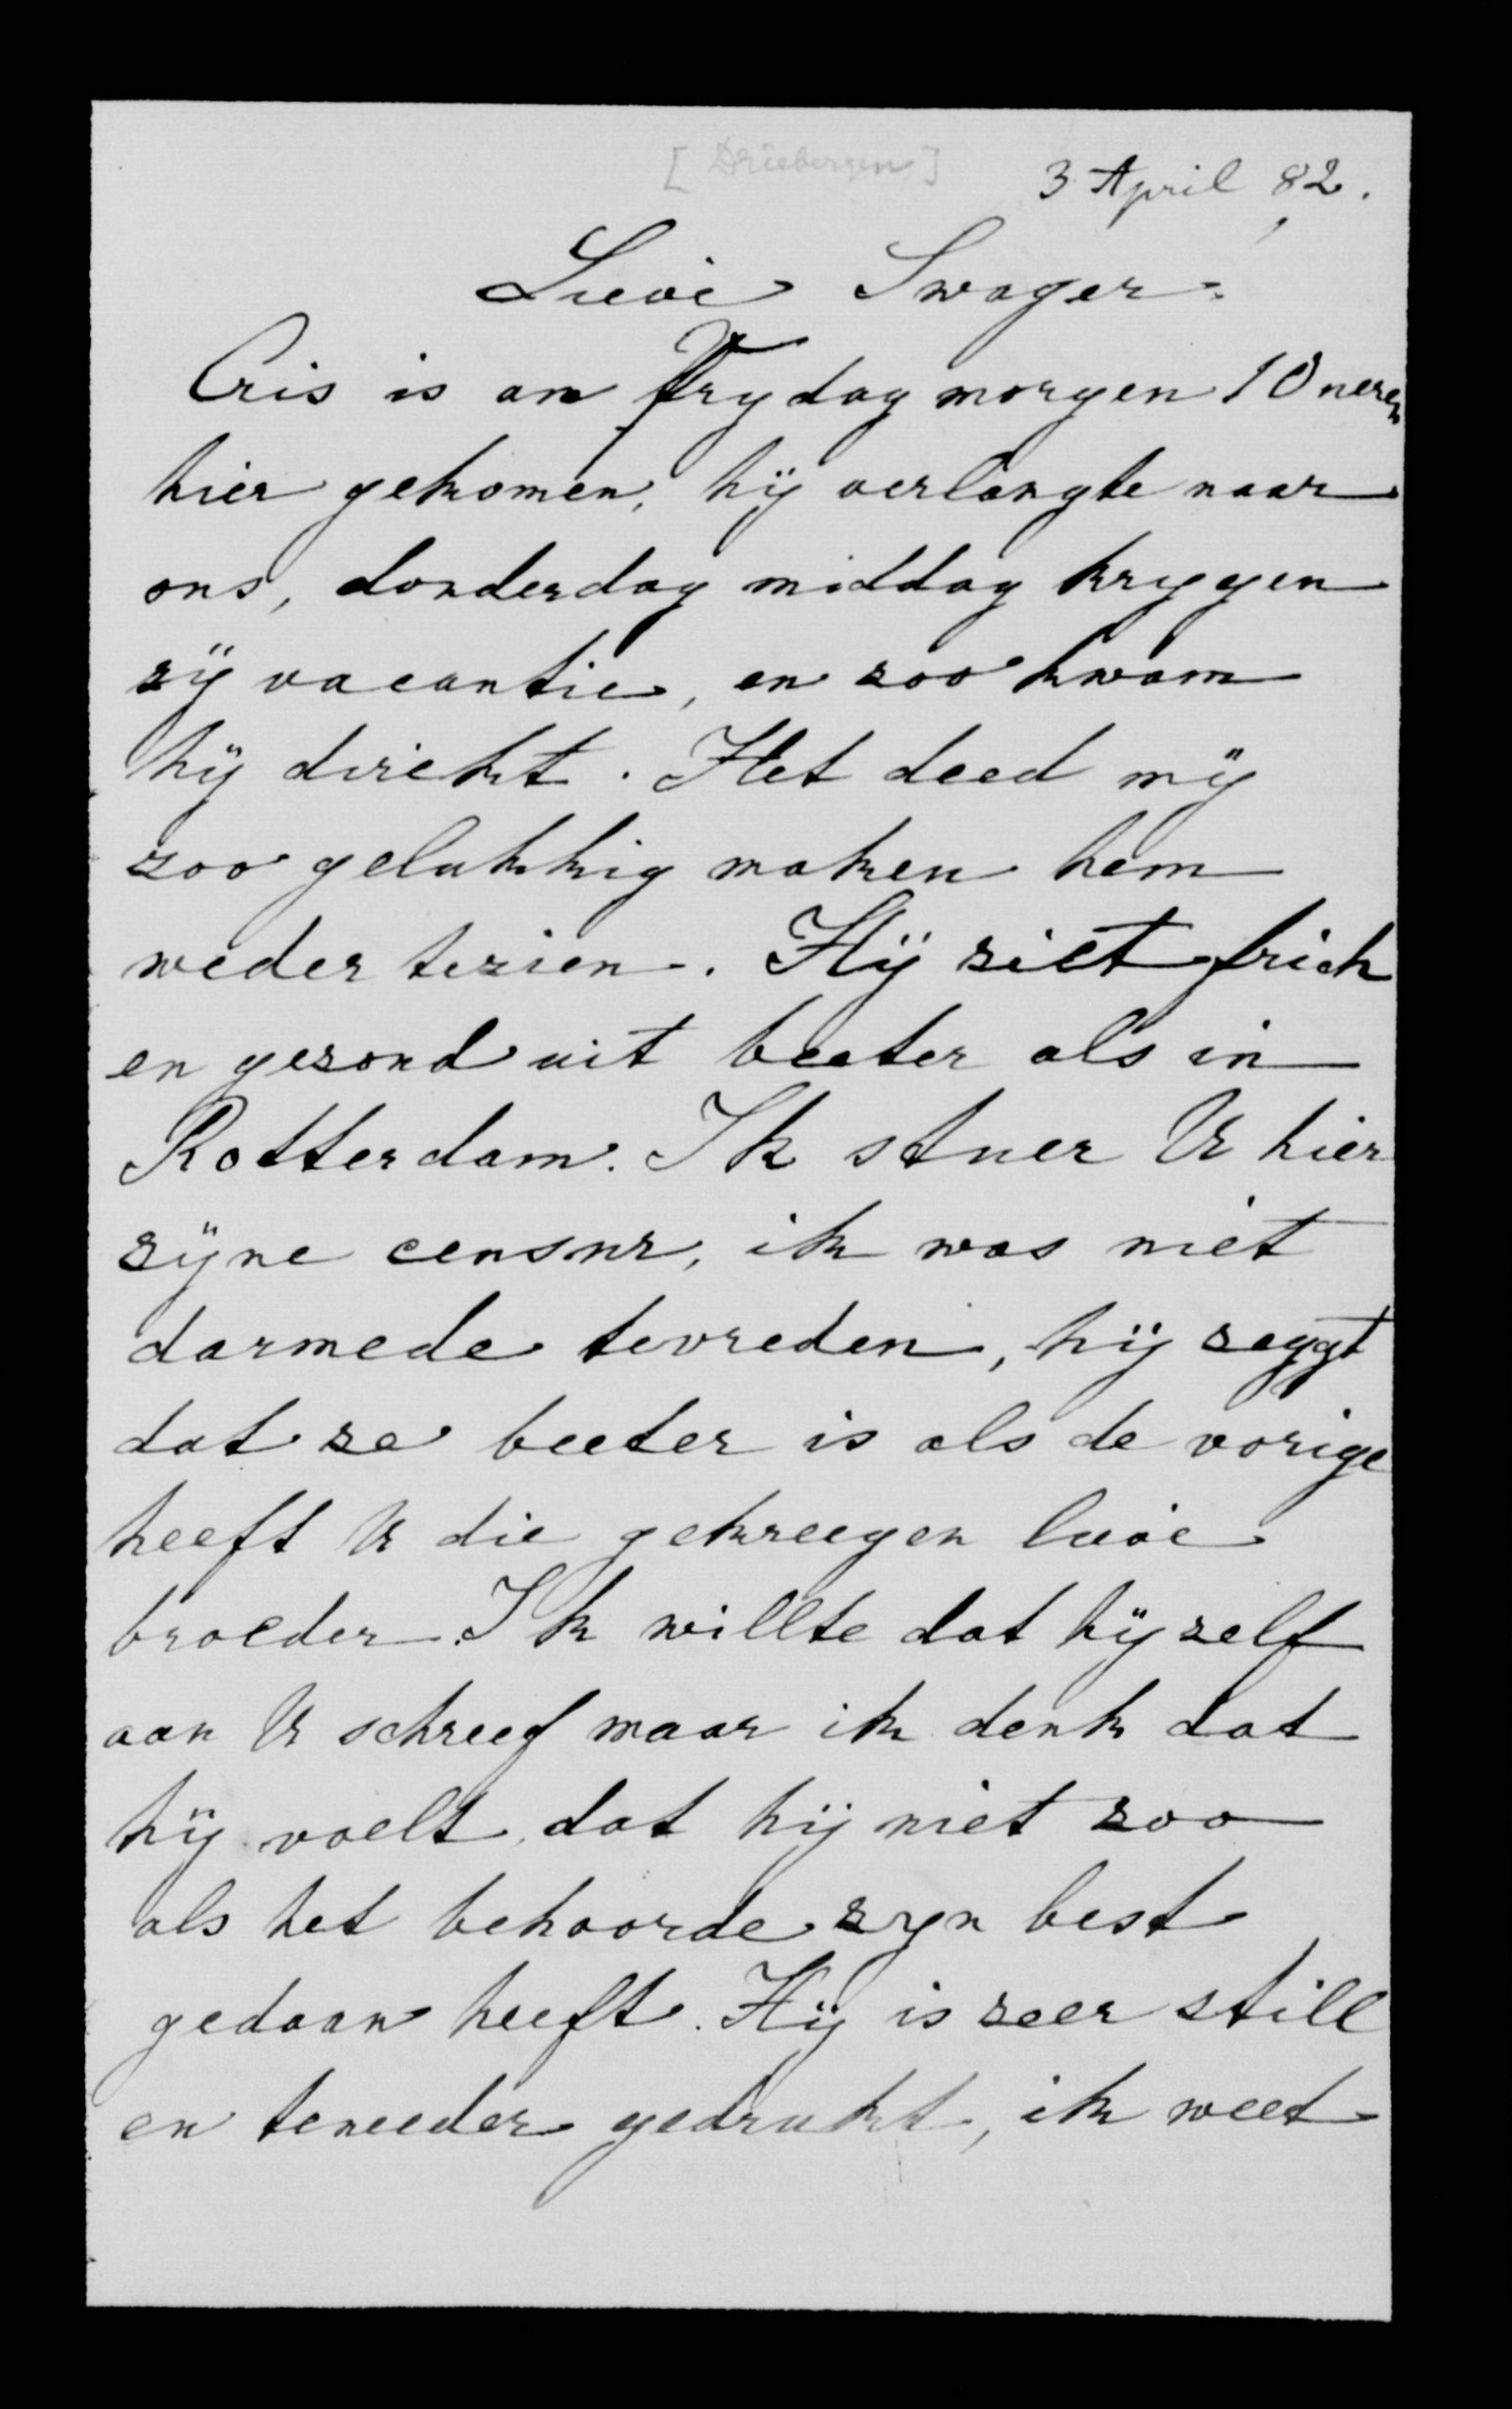 [Driebergen]
3 April 82.
Lieve Swager.
Cris is am Frydag morgen 10 uren
hier gekomen, hÿ verlangte naar
ons, donderdag middag kryggen
zÿ vacantie, en zoo kwam
hÿ direkt. Het deed mÿ
zoo gelukkig maken hem
weder tezien. Hÿ ziet frich
en gezond uit beeter als in
Rotterdam. Ik stuer U hier
zÿne censur, ik was niet
darmede tevreden, hÿ seggt
dat ze beeter is als de vorige
heeft U die gekreegen lieve
broeder. Ik willte dat hÿ zelf
aan U schreef maar ik denk dat
hÿ voelt dat hÿ niet zoo
als het behoorde zyn best
gedaan heeft. Hÿ is zeer still
en teneeder gedrukt, ik weet